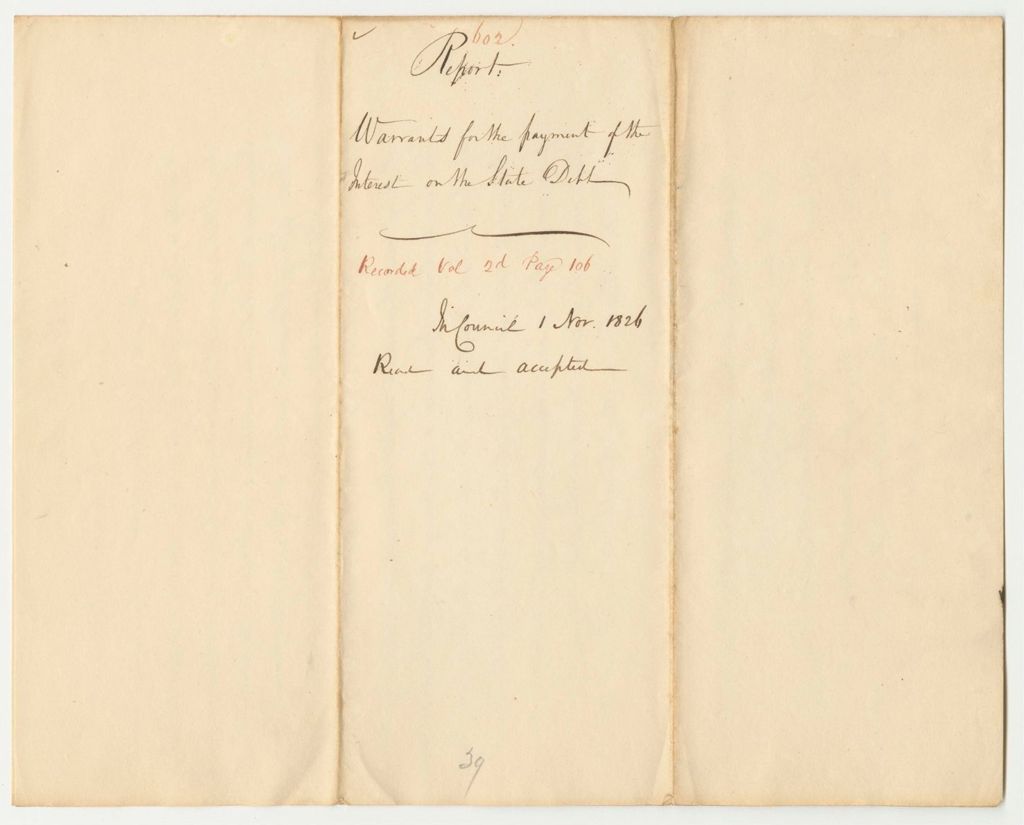 602.
Report.
Warrants for the payment of the
Interest on the State Debt
Recorded Vol 2d Page 106
In Council 1 Nov. 1826
Read and accepted
39